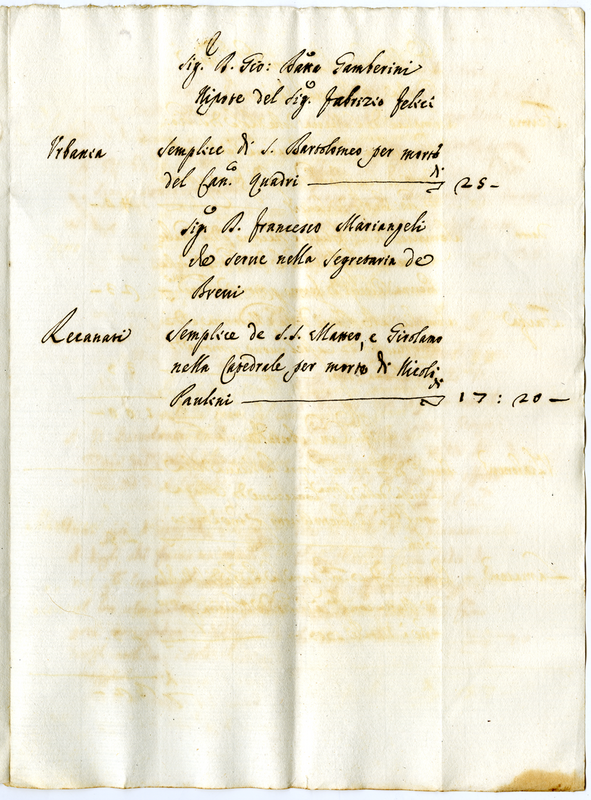 Sig.r D. Gio: Batta Gamberini
Nipote del Sig.r Fabrizio Felici
Urbania Semplice di S. Bartolomeo per morte
del Can.co Quadri — di 25 –
Sig.r D. Francesco Mariangeli
che serve nella Segretaria de
Brevi
Recanati Semplice de S.S. Matteo, e Girolamo
nella Catedrale per morte di Nicolò
Paulini — di 17 : 20 —